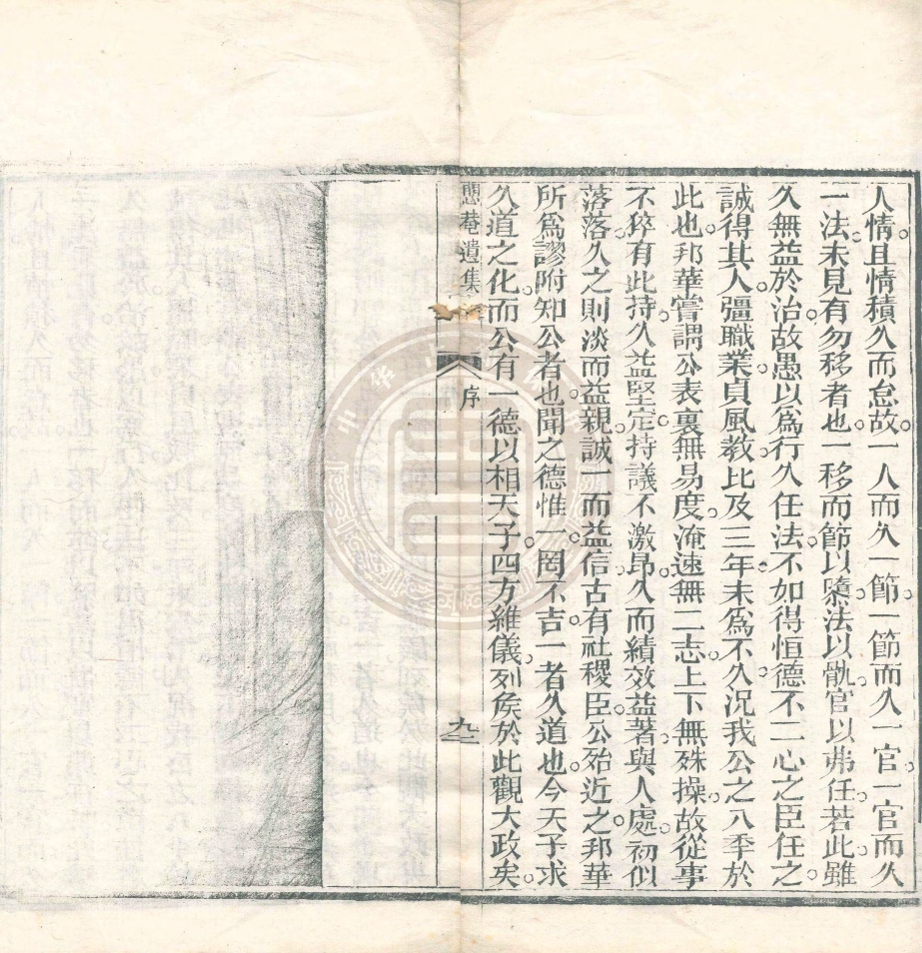 人情且情積久而怠故一人而久一節一節而久一官一官而久
一法未見有勿移者也一移而節以隳法以骫官以弗任若此雖
久無益於治故愚以爲行久任法不如得恒德不二心之臣任之
誠得其人彊職業貞風教比及三年未爲不久況我公之八季於
此也邦華嘗謂公表裏無易度淹速無二志上下無殊操故從事
不猝有此持久益堅定持議不激昂久而績效益著與人處初似
落落久之則淡而益親誠一而益信古有社稷臣公殆近之邦華
所爲謬附知公者也聞之德惟一罔不吉一者久道也今天子求
久道之化而公有一德以相天子四方維儀列矦於此觀大政矣
菴遺集
序
九